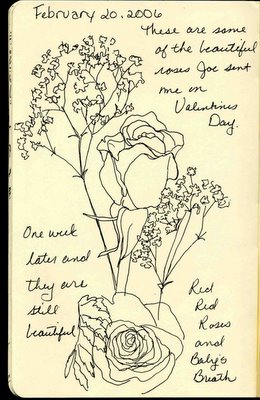 February 20, 2006
These are some
of the beautiful
roses Joe sent
me on
Valentines
Day.
One week
later and
they are
still
beautiful
Red
Red
Roses
and
Baby's
Breath